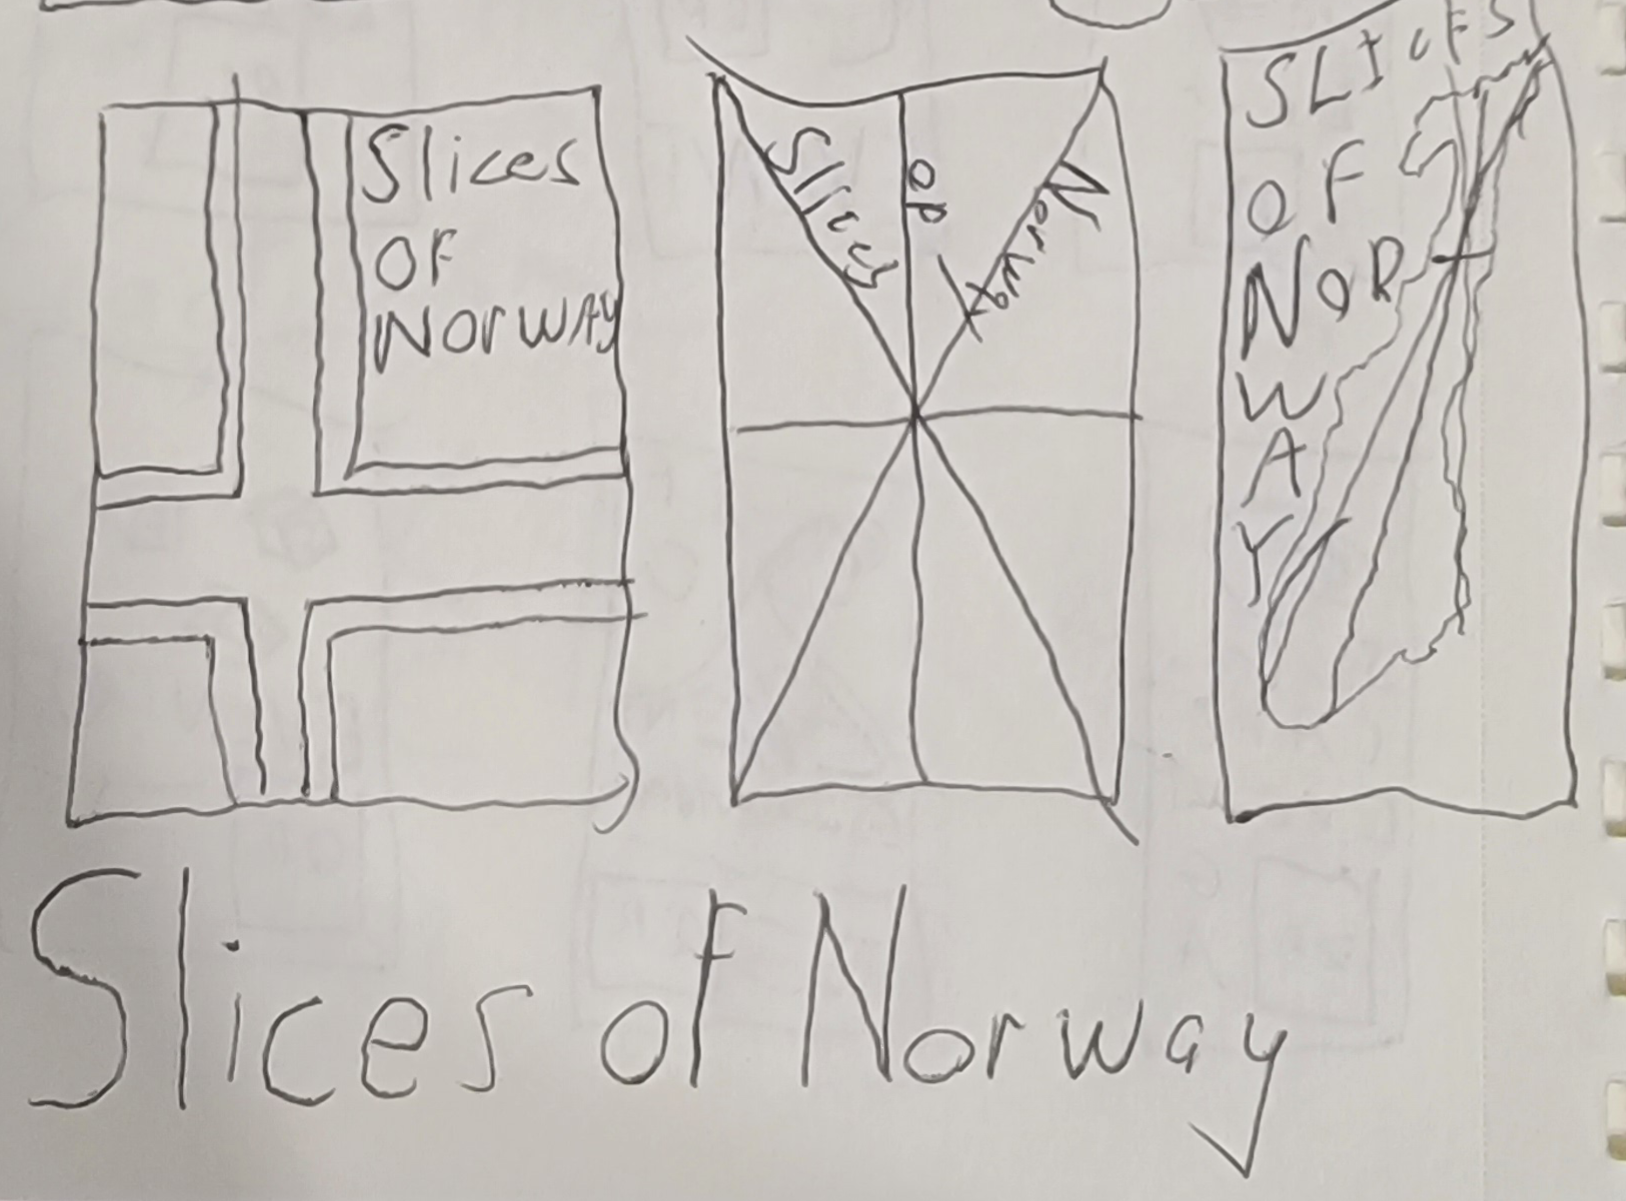 Slices
OF
NORWAY
Slices
OF
Norway
SLICES
OF
NOR
W
A
Y
Slices of Norway